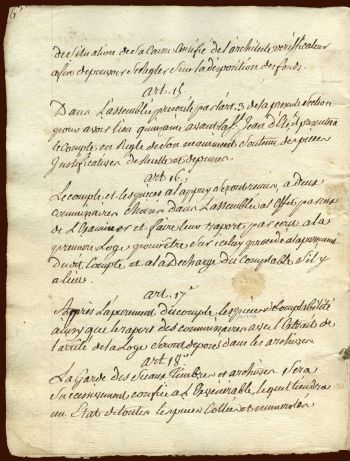 6
de situation de sa Caisse certifié de l'architecte vérificateur
afin de pouvoir se Regler sur la disposition des fonds.
art. 15
Dans L'assemblée prescrite par l'art. 3 de la presente section
pour avoir lieu quinzaine avant la St. Jean d'Eté il presentera
le Compte en Regle de son maniment soutenu de pieces
Justificatives de Recette et depense.
art. 16.
Le compte et les pieces a l'appuy seront remis, a deux
commissaires choisis dans L'assemblée a l'effet par eux
de L'Examiner et faire leur raport par ecrit a la
premiere Loge pour être sur iceluy procedé a l'apurement
du dit Compte et a la Decharge du Comptable s'il y
a lieu.
art. 17e
Après l'apurement du compte les pieces de Comptabilité
ainsy que le raport des commissaires avec l'Extrait de
l'arrêté de la Loge seront deposés dans les archives.
art. 18e
La Garde des Sceaux Timbres et archives Sera
Successivement confiée au Vénérable, lequel tiendra
un Etat de toutes les pieces Cottées et numerotées